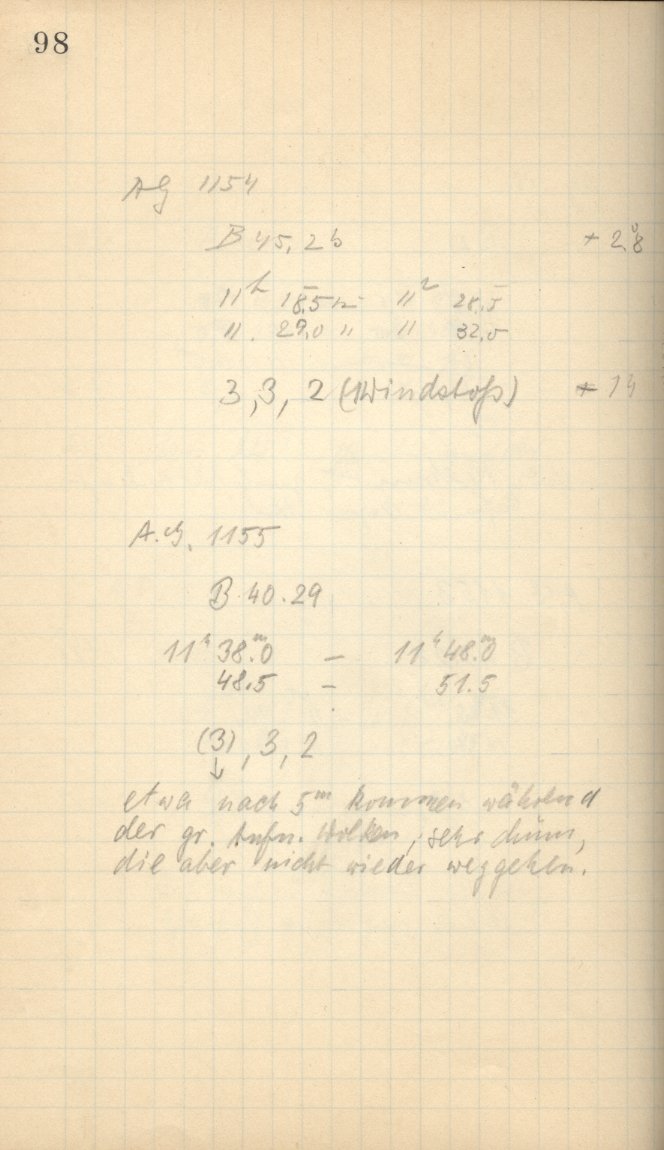 98
AG 1154
B 45, 26 + 2.8
11h 18.5m 11h 28.5
11. 29.0 " 11 32.0
3, 3, 2 (Windstoß) + 14
A.G. 1155
B 40.29
11h 38.m0 – 11h 48.m0
48.5 – 51.5
(3), 3, 2
↓
etwa nach 5m kommen während
der gr. Aufn. Wolken, sehr dünn,
die aber nicht wieder weggehen.